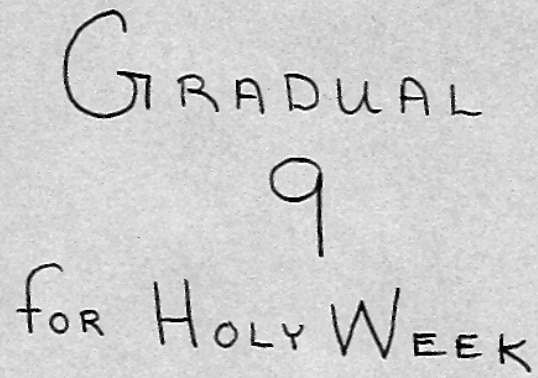 GRADUAL
9
for HOLY WEEK